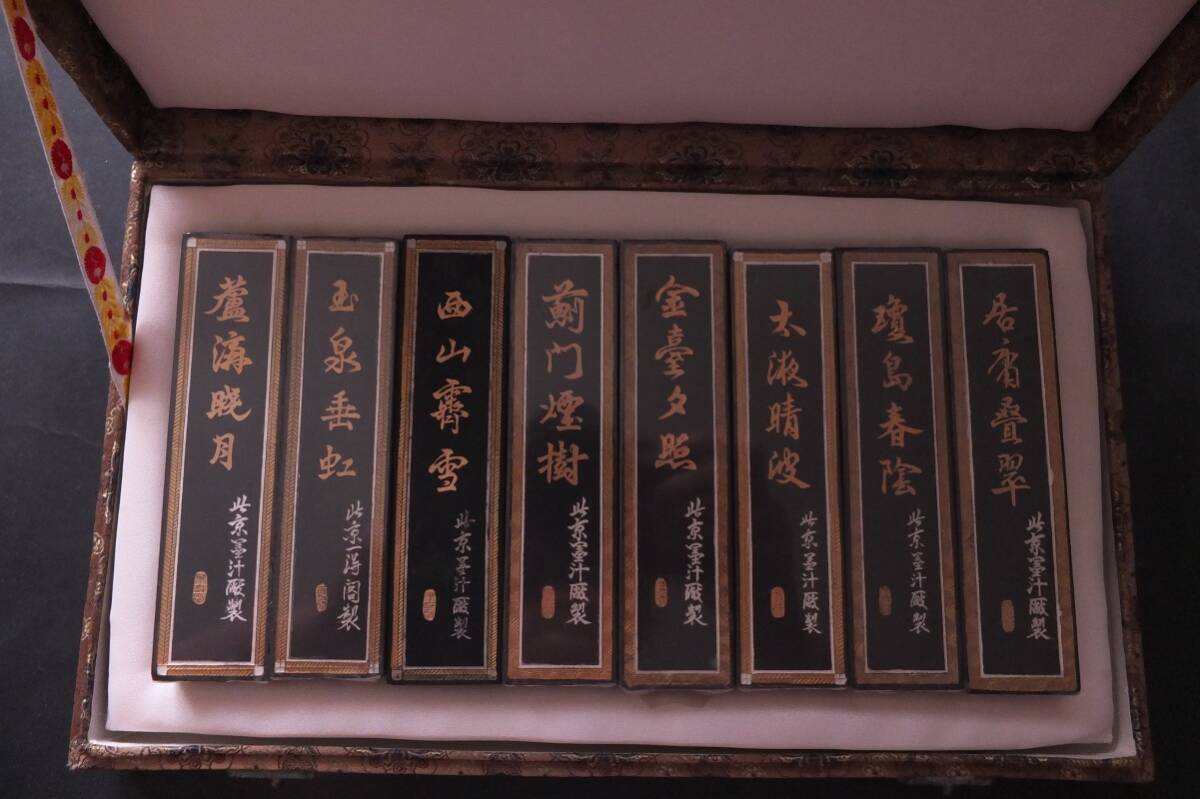 居庸叠翠
北京墨汁廠製
瓊島春陰
北京墨汁廠製
太液晴波
北京墨汁廠製
金臺夕照
北京墨汁廠製
薊门煙樹
北京墨汁廠製
西山霽雪
北京墨汁廠製
玉泉垂虹
北京一得阁製
蘆溝晓月
北京墨汁廠製